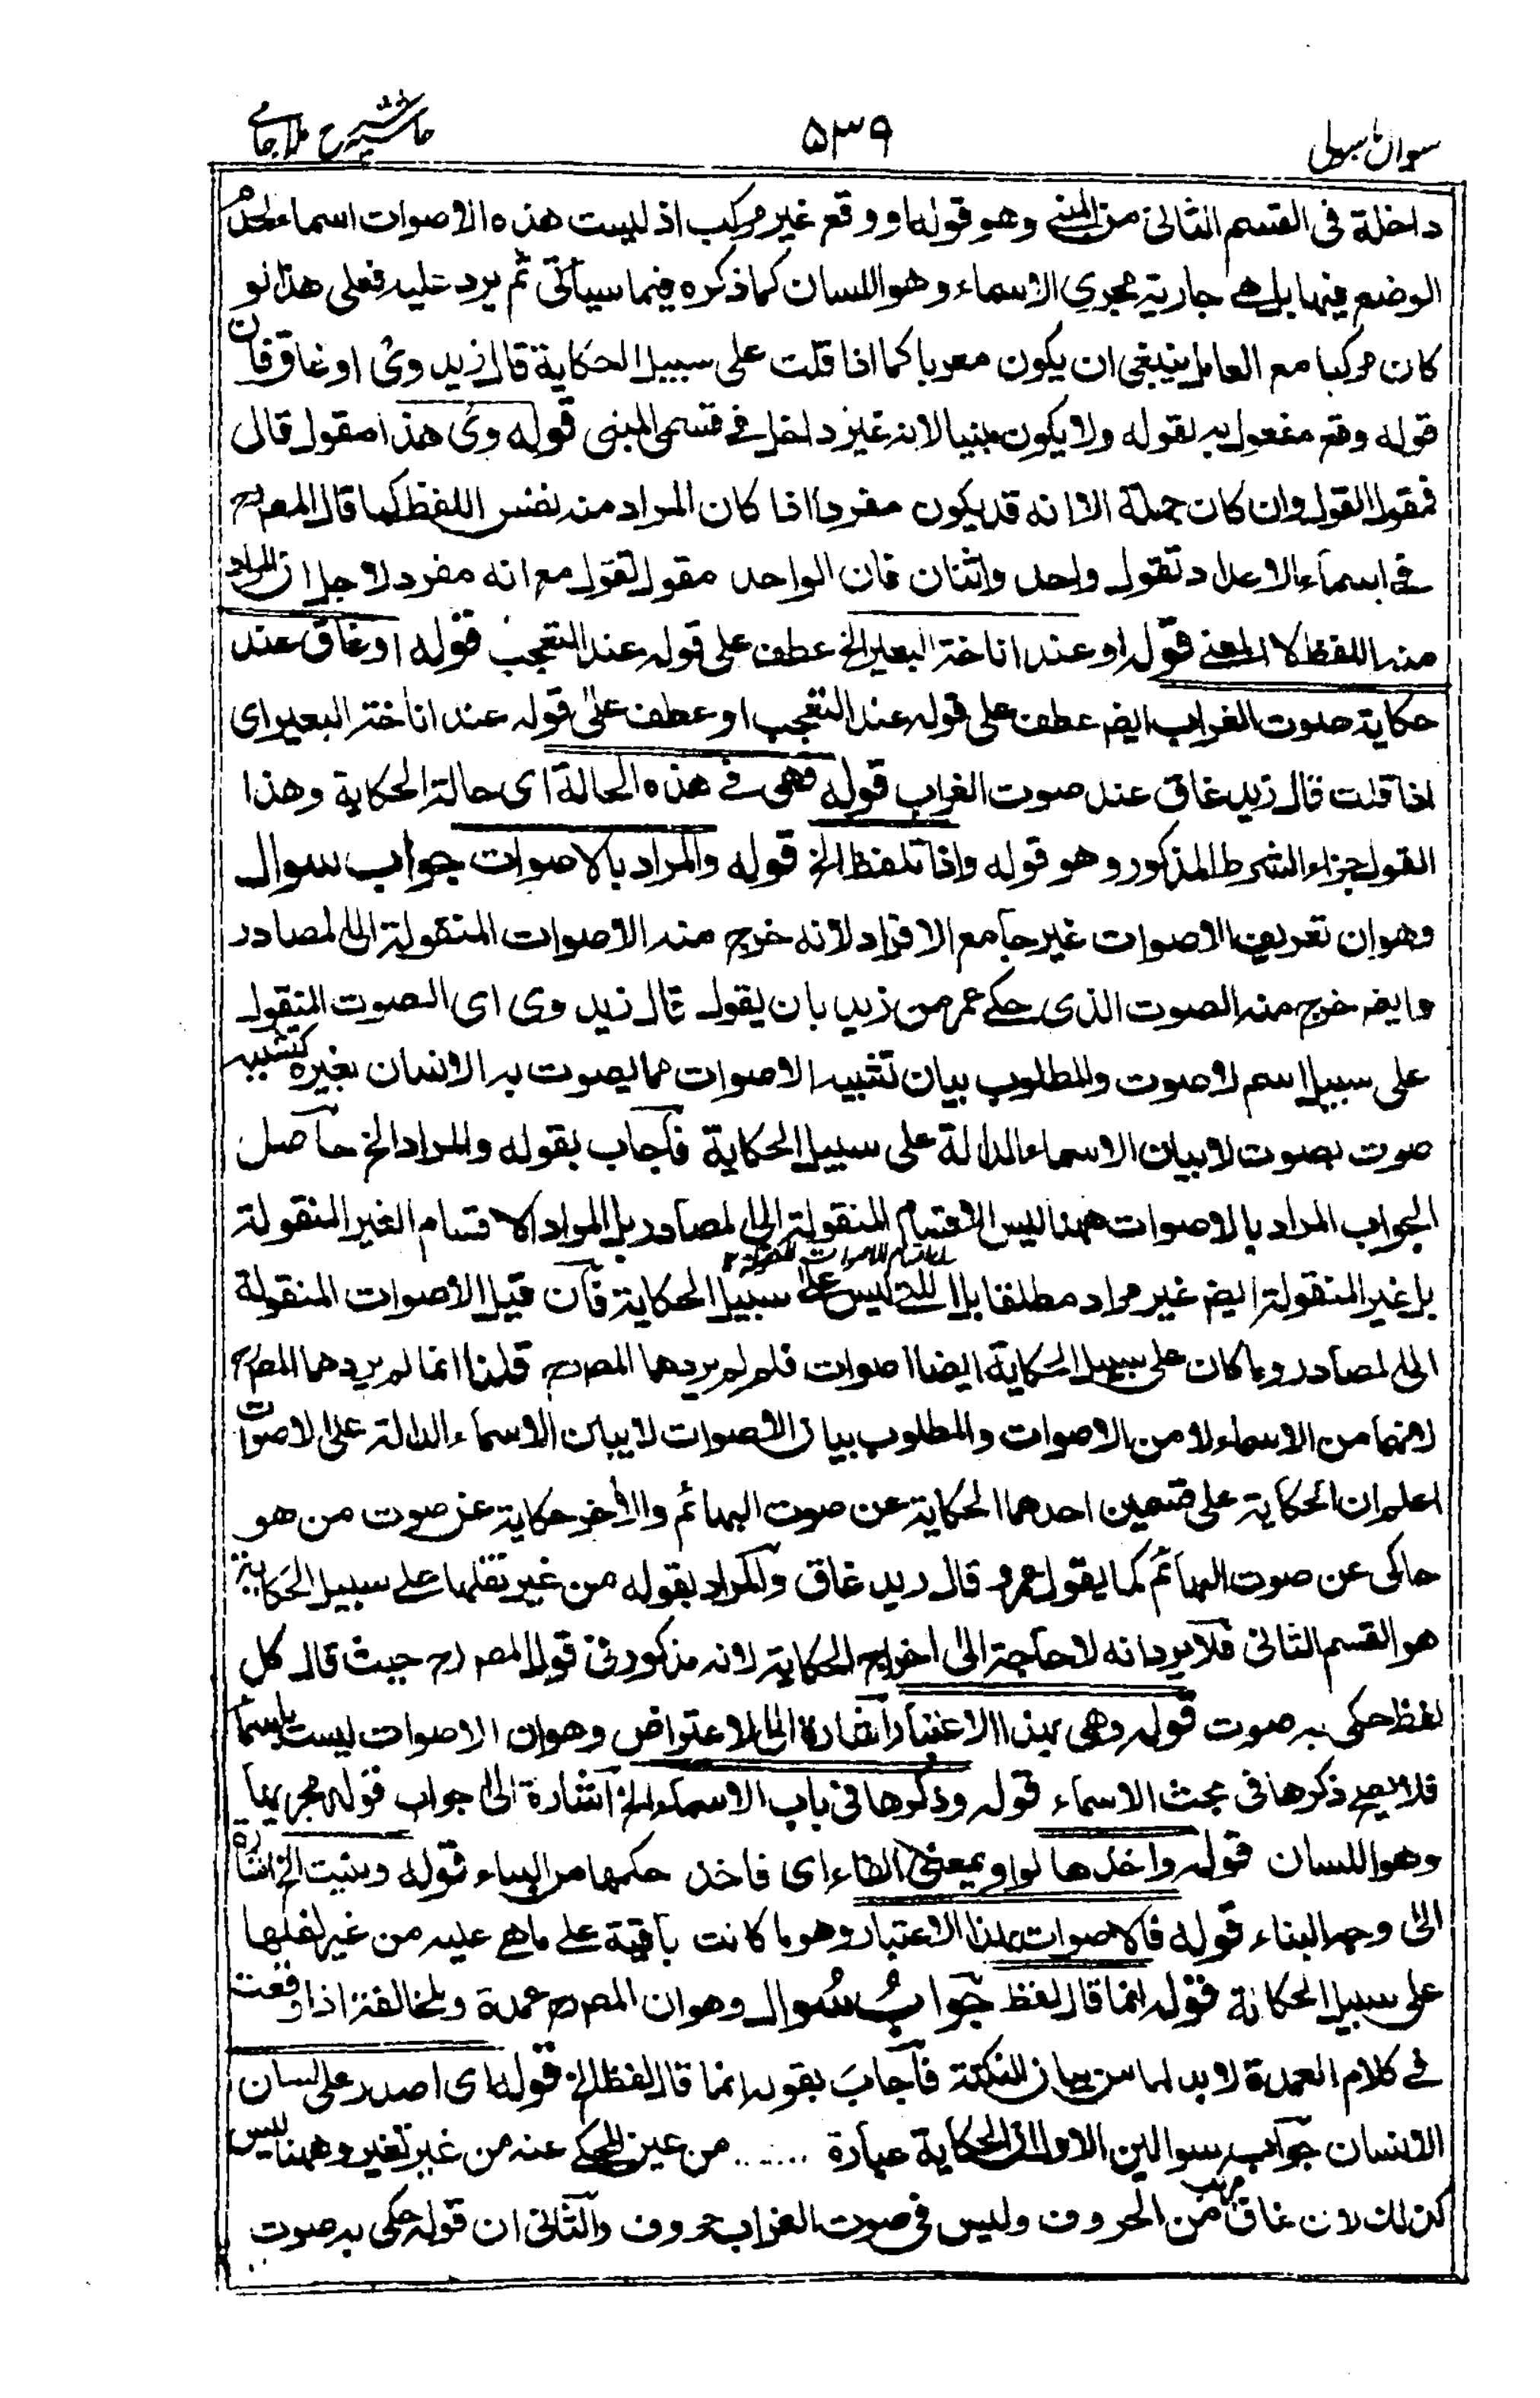 سوال باسولی ۵۳۹ حاشیہ شرح ملا جامی
داخلة فى القسم الثانى من المبنى وهو قوله او وقع غير مركب اذ ليست هذه الاصوات اسماء لعدم
الوضع فيها بل هى جارية مجرى الاسماء وهو اللسان كما ذكره فيما سيأتى ثم يرد عليه فعلى هذا لو
كان مركبا مع العامل ينبغى ان يكون معربا كما اذا قلت على سبيل الحكاية قال زيد وى او غاق فان
قوله وقع مفعول به لقوله ولا يكون مبنيا لانه غير داخل فى قسمى المبنى قوله وى هذا مقول قال
فمقول القول وان كان جملة الا انه قد يكون مفردا اذا كان المراد منه نفس اللفظ كما قال المصرح
فى اسماء الاعداد تقول واحد واثنان فان الواحد مقول تقول مع انه مفرد لاجل ان المراد
منه اللفظ لا المعنى قوله او عند اناخة البعير الخ عطف على قوله عند التعجب قوله او غاق عند
حكاية صوت الغراب ايضر عطف على قوله عند التعجب او عطف على قوله عند اناخة البعير اى
اذا قلت قال زيد غاق عند صوت الغراب قوله فهى فى هذه الحالة اى حالة الحكاية وهذا
القول جزاء الشرط المذكور وهو قوله واذا تلفظ الخ قوله والمراد بالاصوات جواب سوال
وهو ان تعريف الاصوات غير جامع الافراد لانه خرج منه الاصوات المنقولة الى المصادر
وايضر خرج منه الصوت الذى حكى عمر من زيد بان يقول قال زيد وى اى الصوت المنقول
على سبيل اسم لاصوت والمطلوب بيان تشبيه الاصوات مما يصوت به الانسان بغيره كتشبيه
صوت بصوت لا بيان الاسماء الدالة على سبيل الحكاية فاجاب بقوله والمراد الخ حاصل
الجواب المراد بالاصوات ههنا ليس الاقسام المنقولة الى المصادر بل المراد الاقسام الغير المنقولة
بل غير المنقولة ايضر غير مراد مطلقا بل التى ليس على سبيل الحكاية فان قيل الاصوات المنقولة
الى المصادر وما كان على سبيل الحكاية ايضا اصوات فلم لم يردها المصرح قلنا انما لم يردهما المصرح
لانهما من الاسماء لا من الاصوات والمطلوب بيان الاصوات لا بيان الاسماء الدالة على الاصوات
اعلم ان الحكاية على قسمين احدهما الحكاية عن صوت البهائم والاخر حكاية عن صوت من هو
حاكى عن صوت البهائم كما يقول عمرو قال زيد غاق والمراد بقوله من غير نقلها على سبيل الحكاية
هو القسم الثانى فلا يرد انه لا حاجة الى اخراج الحكاية لانه مذكور فى قول المصر رح حيث قال كل
لفظ حكى به صوت قوله وهى بهذا الاعتبار اشارة الى الاعتراض وهو ان الاصوات ليست باسماء
فلا يصح ذكرها فى بحث الاسماء قوله وذكرها فى باب الاسماء الخ اشارة الى جواب قوله مجريها
وهو اللسان قوله واخذها لواو بمعنى الفاء اى فاخذ حكمها من البناء قوله وبنيت الخ اشارة
الى وجه البناء قوله فالاصوات بهذا الاعتبار وهو ما كانت باقية على ما هى عليه من غير نقلها
على سبيل الحكاية قوله انما قال لفظ جواب سوال وهو ان المصرح عمدة ومخالفة اذا وقعت
فى كلام العمدة لا بد لها من بيان النكتة فاجاب بقوله انما قال لفظ الخ قوله اى اصدر على لسان
الانسان جواب سوالين الاول ان الحكاية عبارة ...... من عين المحكى عنه من غير تغير وههنا ليس
كذلك لان غاق مركب من الحروف وليس فى صوت الغراب حروف والثانى ان قوله حكى به صوت